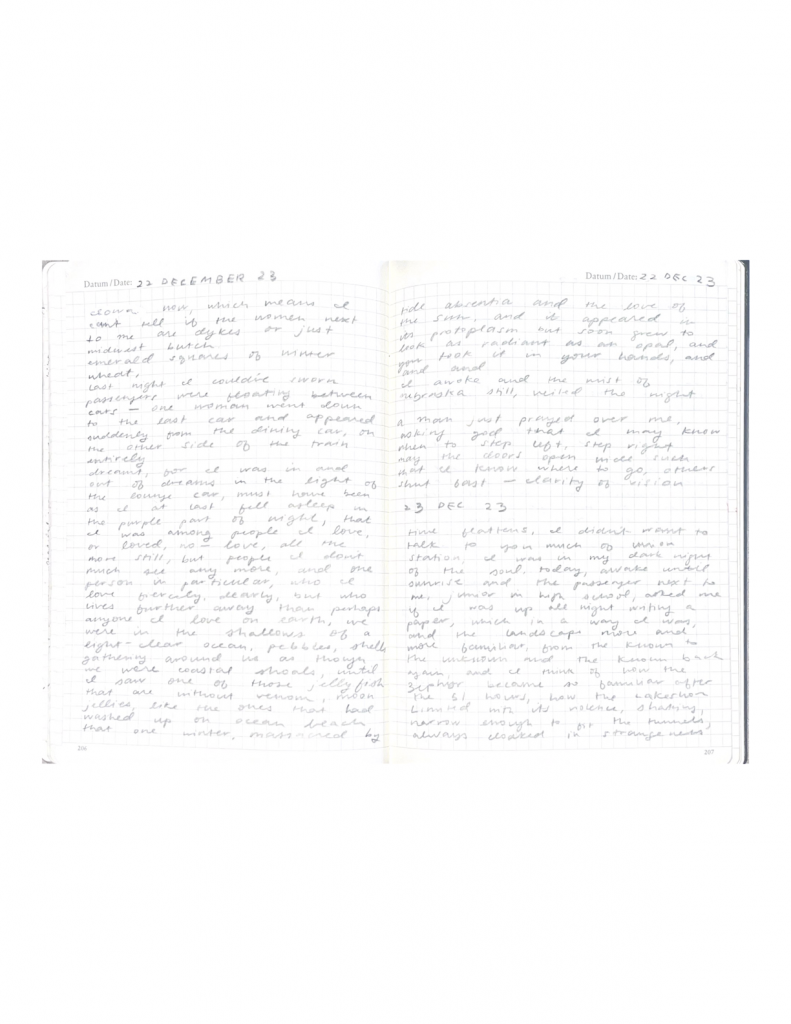 Datum / Date: 22 DECEMBER 23
down now, which means I
can't tell if the women next
to me are dykes or just
midwest butch
emerald squares of winter
wheat,
last night I could've sworn
passengers were floating between
cars — one woman went down
to the last car and appeared
suddenly from the dining car, on
the other side of the train
entirely
dreamt, for I was in and
out of dreams in the light of
the lounge car, must have been
as I at last fell asleep in
the purple part of night, that
I was among people I love,
or loved, no — love, all the
more still, but people I don't
much see any more, and one
person in particular, who I
love fiercely, dearly, but who
lives further away than perhaps
anyone I love on earth, we
were in the shallows of a
light-clear ocean, pebbles, shells
gathering around us as though
we were coastal shoals, until
I saw one of those jellyfish
that are without venom, moon
jellies, like the ones that had
washed up on ocean beach
that one winter, massacred by
206
Datum / Date: 22 DEC 23
tide absentia and the love of
the sun, and it appeared in
its protoplasm but soon grew to
look as radiant as an opal, and
you took it in your hands, and
and and
I awoke and the mist of
nebraska still, veiled the night
a man just prayed over me,
asking god that I may know
when to step left, step right
may the doors open wide such
that I know where to go, others
shut fast — clarity of vision
23 DEC 23
time flattens, I didn't want to
talk to you much of union
station, I was in my dark night
of the soul. today, awake until
sunrise and the passenger next to
me, junior in high school, asked me
if I was up all night writing a
paper, which in a way I was,
and the landscape more and
more familiar, from the known to
the unknown and the known back
again, and I think of how the
zephyr became so familiar after
the 51 hours, how the lakeshore
limited with its violence, shaking,
narrow enough to fit the tunnels,
always cloaked in strangeness
207